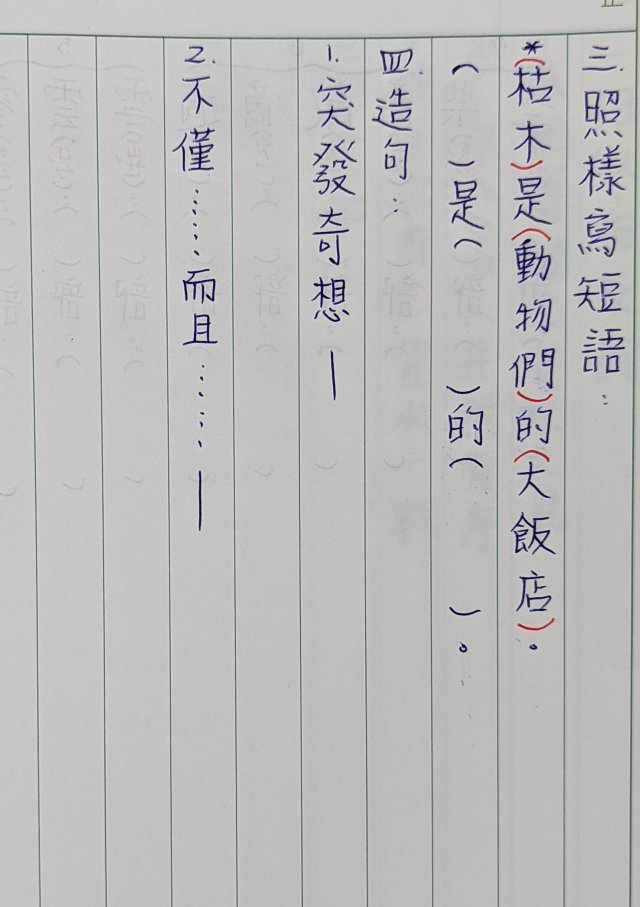 三.照樣寫短語:
*(枯木)是(動物們)的(大飯店)。
( )是( )的( )。
四.造句:
1.突發奇想—
2.不僅……而且……—